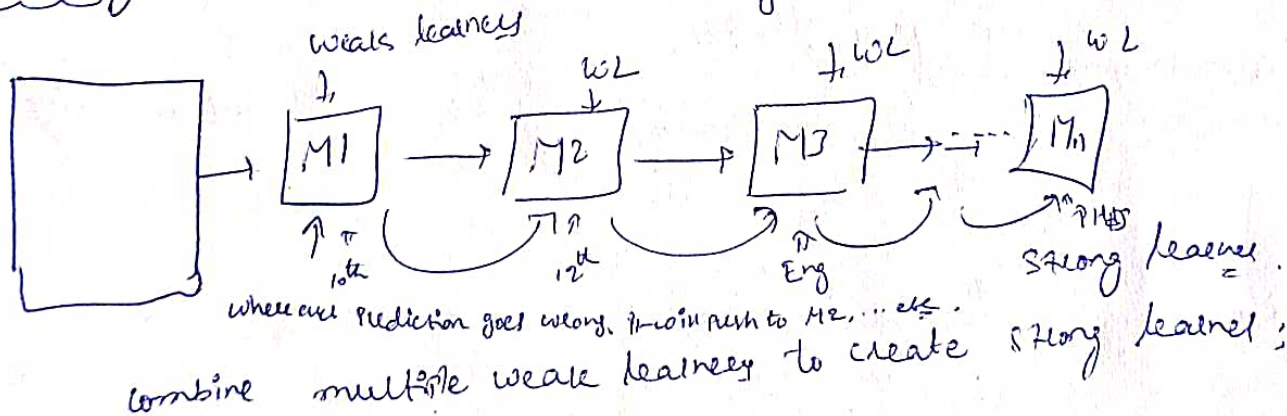 weak learners
WL
WL
WL
M1
M2
M3
Mn
10th
12th
Eng
PHD
strong learner.
where ever prediction goes wrong, it will push to M2, ... etc.
combine multiple weak learners to create strong learner;